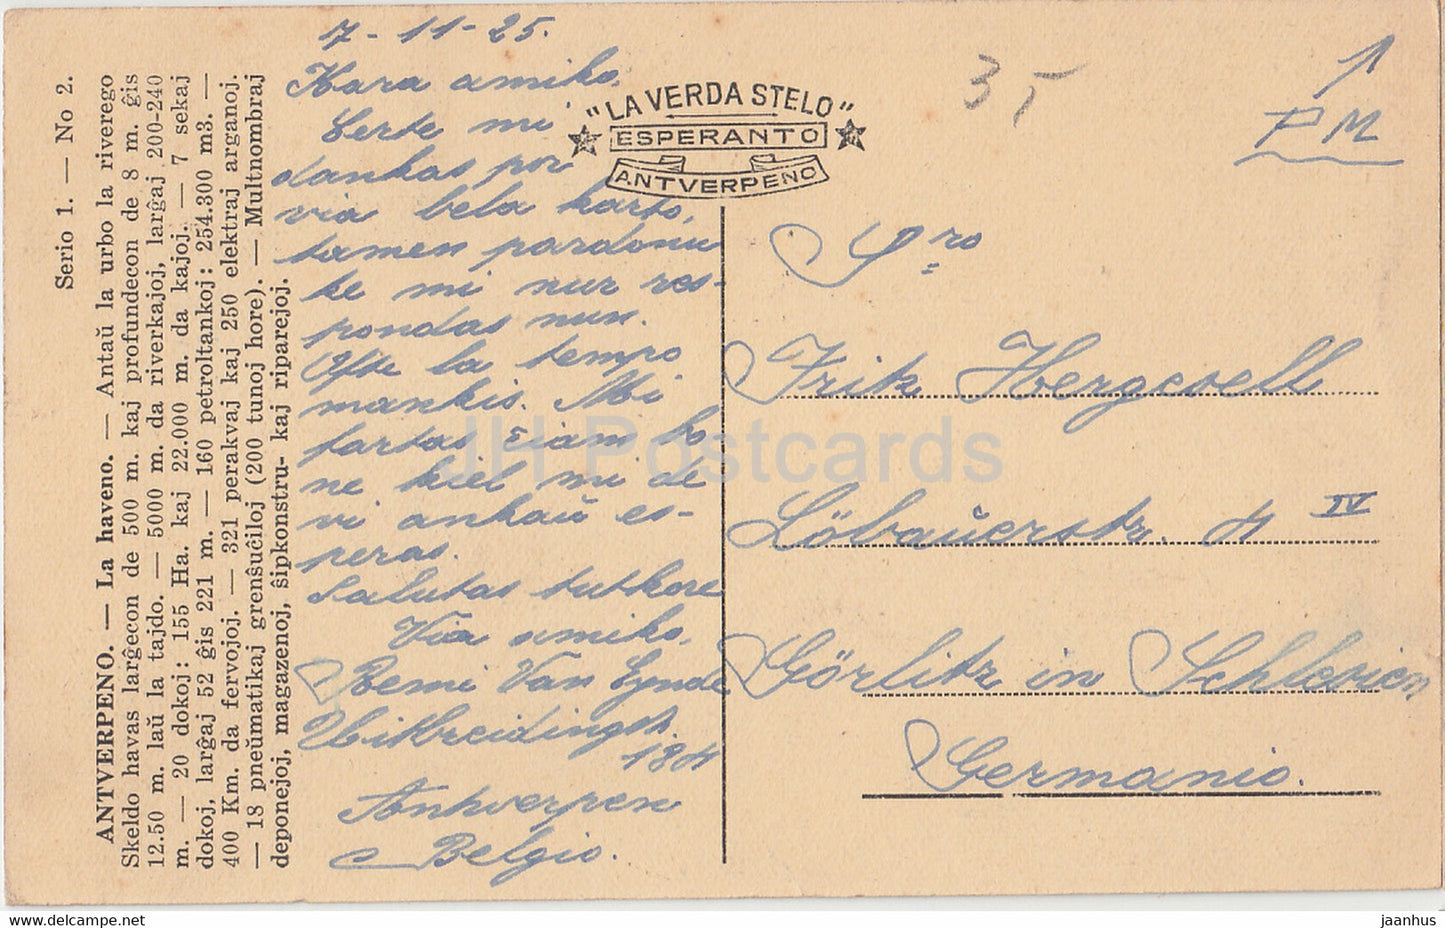 Serio 1. — No 2.
ANTVERPENO. — La haveno. — Antaŭ la urbo la riverego
Skeldo havas larĝecon de 500 m. kaj profundecon de 8 m. ĝis
12.50 m. laŭ la tajdo. — 5000 m. da riverkajoj, larĝaj 200-240
m. — 20 dokoj: 155 Ha. kaj 22.000 m. da kajoj. — 7 sekaj
dokoj, larĝaj 52 ĝis 221 m. — 160 petroltankoj: 254.300 m3. —
400 Km. da fervojoj. — 321 perakvaj kaj 250 elektraj arganoj.
— 18 pneŭmatikaj grenŝuĉiloj (200 tunoj hore). — Multnombraj
deponejoj, magazenoj, ŝipkonstru- kaj riparejoj.
7-11-25.
Kara amiko,
Certe mi
dankas por
via bela karto,
tamen pardonu
ke mi nur res-
pondas nun.
Ofte la tempo
mankis. Mi
fartas ĉiam bo-
ne kiel mi de
vi ankaŭ es-
peras.
Salutas tutkore
Via amiko,
Remi Van Eynde
184
Antwerpen
Belgio.
"LA VERDA STELO"
ESPERANTO
ANTVERPENO
35
1
PM
Sro
Frik Hergesell
Löbaŭerstr. 4 IV
Görlitz in Schlesien
Germanio.
JH Postcards
www.delcampe.net
jaanhus